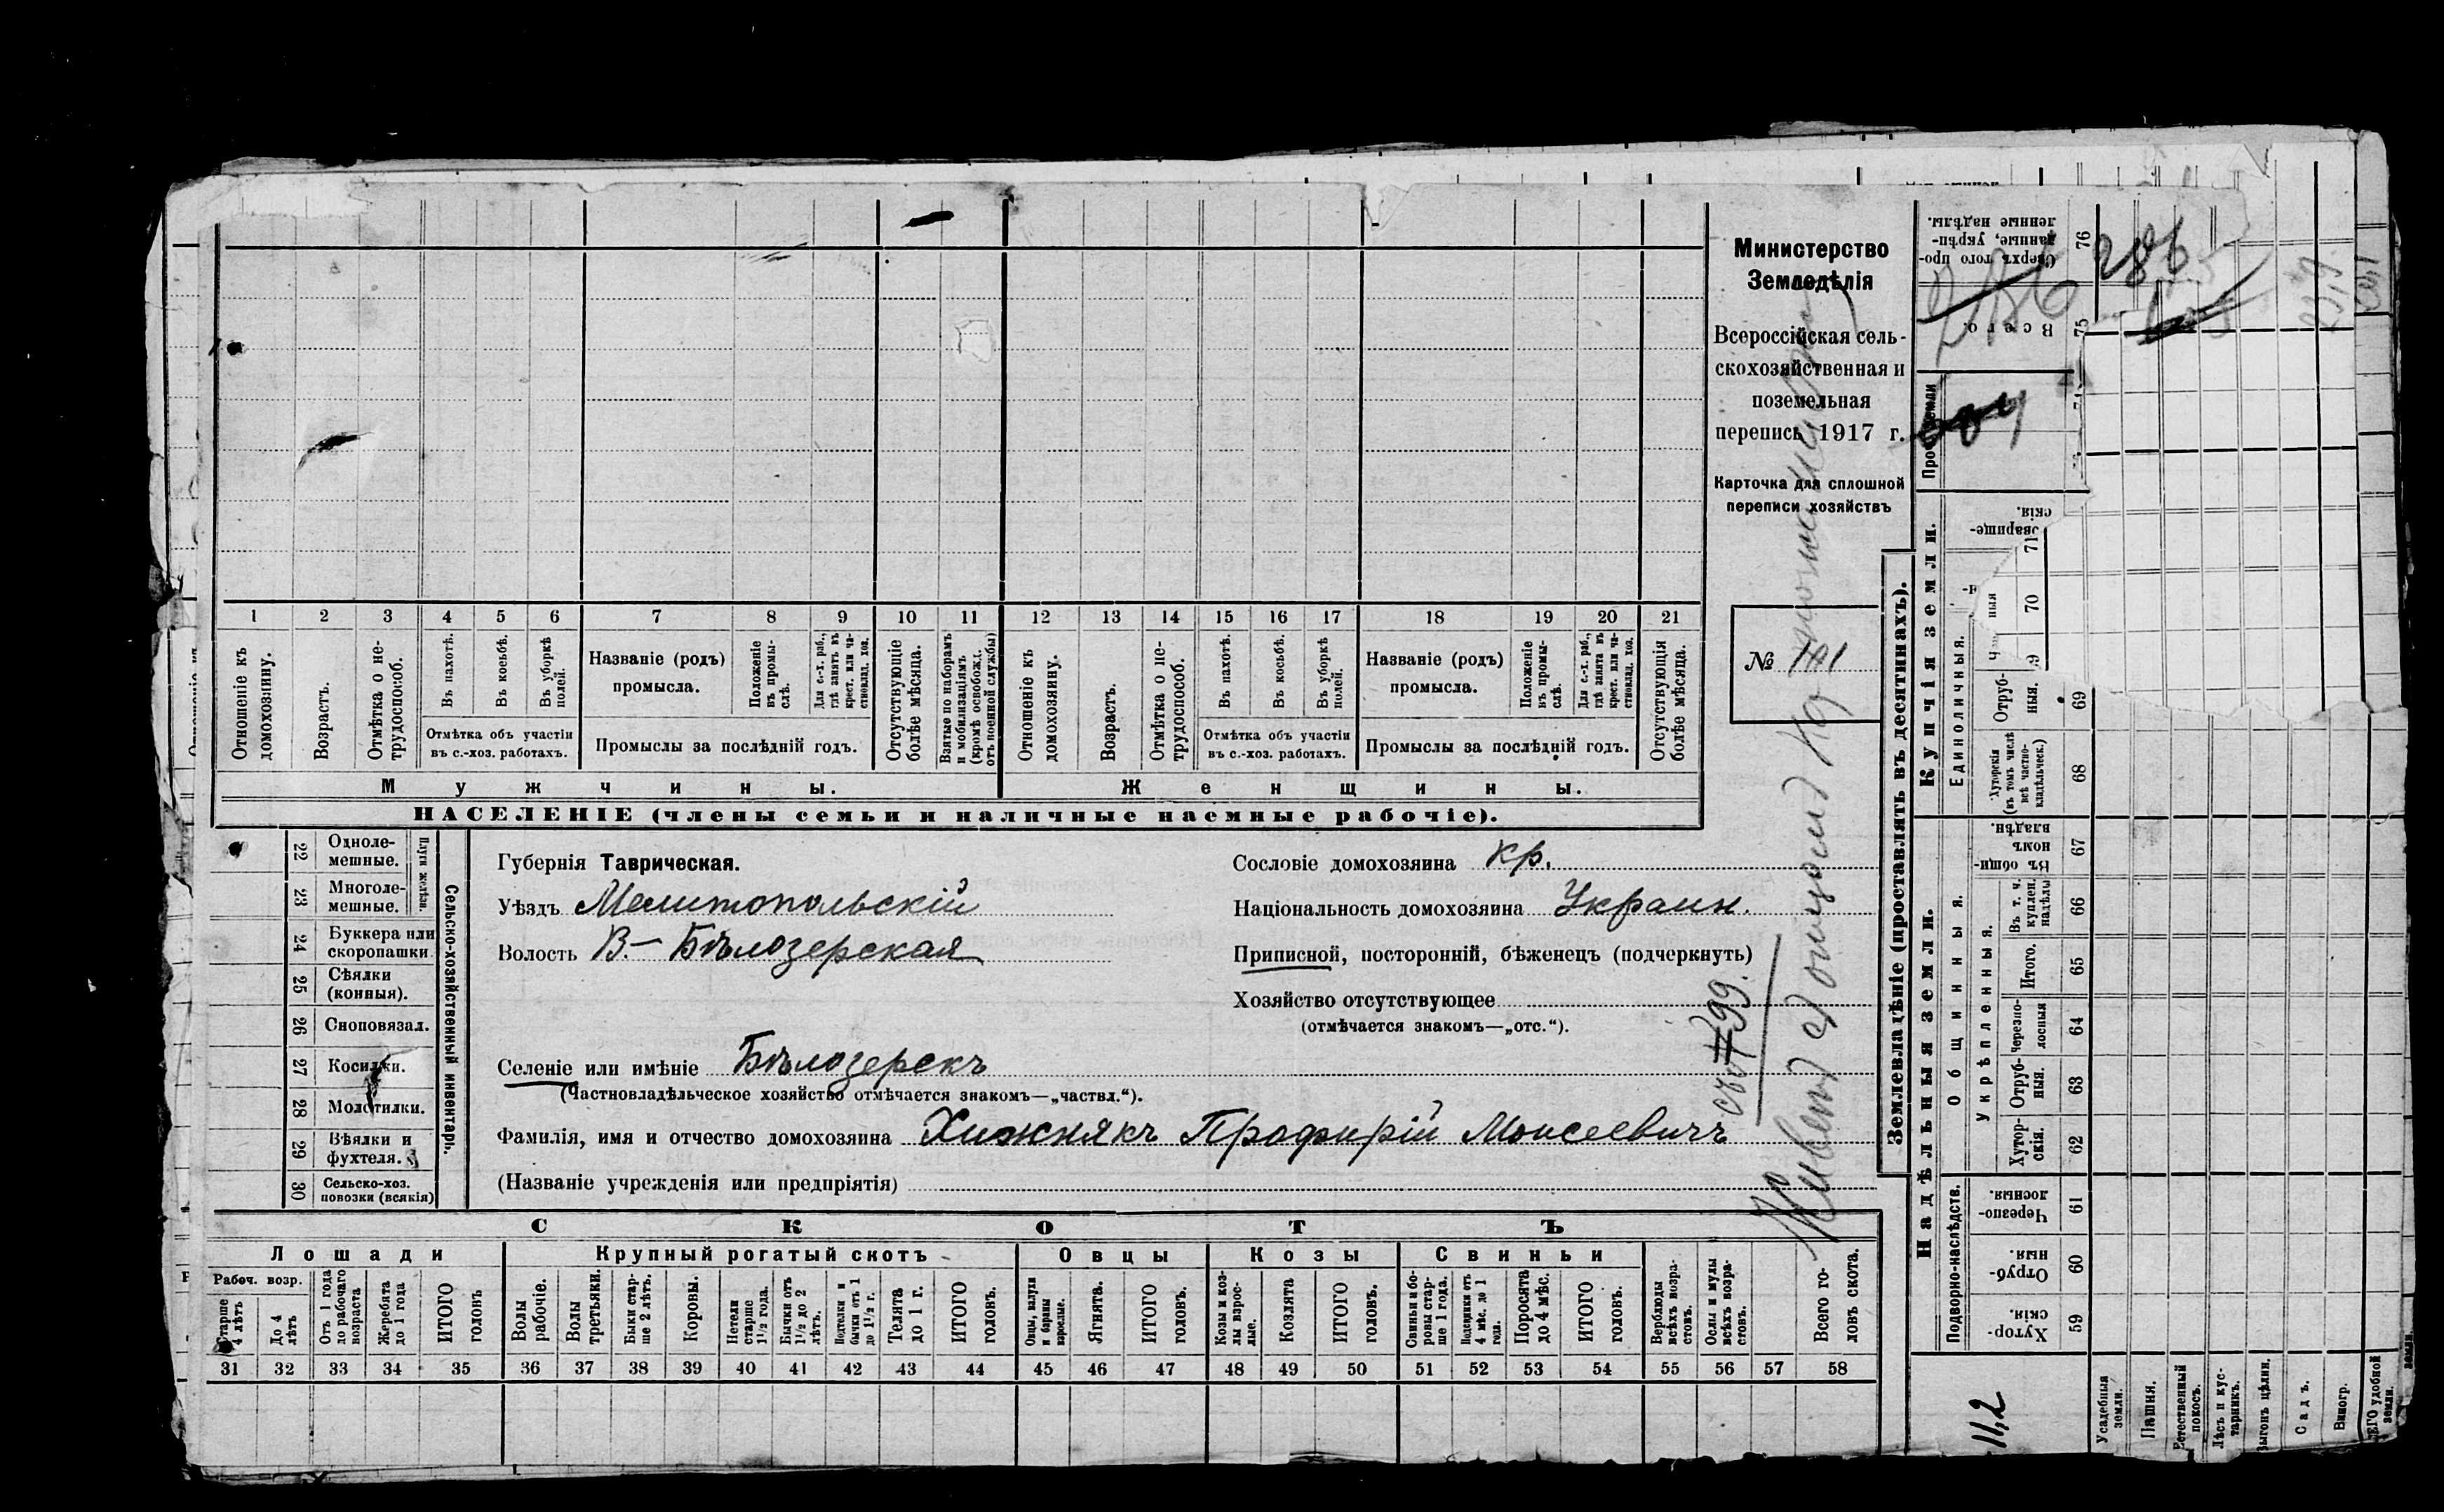 Министерство
Земледѣлія
Всероссійская сель-
скохозяйственная и
поземельная
перепись 1917 г.
Карточка для сплошной
переписи хозяйствъ
№
1 2 3 4 5 6 7 8 9 10 11 12 13 14 15 16 17 18 19 20 21
Отношеніе къ домохозяину.
Возрастъ.
Отмѣтка о не-трудоспособ.
Въ пахотѣ.
Въ косьбѣ.
Въ уборкѣ полей.
Отмѣтка объ участіи
въ с.-хоз. работахъ.
Названіе (родъ)
промысла.
Положеніе въ промы-слѣ.
Для с.-х. раб., гдѣ занятъ въ крест. или ча-стновлад. хоз.
Промыслы за послѣдній годъ.
Отсутствующіе болѣе мѣсяца.
Взятые по наборамъ и мобилизаціямъ (кромѣ освобожд. отъ военной службы)
Отношеніе къ домохозяину.
Возрастъ.
Отмѣтка о не-трудоспособ.
Въ пахотѣ.
Въ косьбѣ.
Въ уборкѣ полей.
Отмѣтка объ участіи
въ с.-хоз. работахъ.
Названіе (родъ)
промысла.
Положеніе въ промы-слѣ.
Для с.-х. раб., гдѣ занята въ крест. или ча-стновлад. хоз.
Промыслы за послѣдній годъ.
Отсутствующія болѣе мѣсяца.
Мужчины.
Женщины.
НАСЕЛЕНІЕ (члены семьи и наличные наемные рабочіе).
22 Одноле-мешные.
23 Многоле-мешные.
Плуги желѣзн.
24 Буккера или скоропашки
25 Сѣялки (конныя).
26 Сноповязал.
27 Косилки.
28 Молотилки.
29 Вѣялки и фухтеля.
30 Сельско-хоз. повозки (всякія)
Сельско-хозяйственный инвентарь.
Губернія Таврическая.
Уѣздъ Мелитопольскій
Волость В.-Бѣлозерская
Сословіе домохозяина кр.
Національность домохозяина Украин.
Приписной, посторонній, бѣженецъ (подчеркнуть)
Хозяйство отсутствующее
(отмѣчается знакомъ—„отс.“).
Селеніе или имѣніе Бѣлозерскъ
(Частновладѣльческое хозяйство отмѣчается знакомъ—„частвл.“).
Фамилія, имя и отчество домохозяина Хижнякъ Профирій Моисеевичъ
(Названіе учрежденія или предпріятія)
Живетъ с отцомъ
СКОТЪ
Лошади
Крупный рогатый скотъ
Овцы
Козы
Свиньи
Рабоч. возр.
Старше 4 лѣтъ
До 4 лѣтъ
Отъ 1 года до рабочаго возраста
Жеребята до 1 года
ИТОГО головъ
Волы рабочіе.
Волы третьяки.
Быки стар-ше 2 лѣтъ.
Коровы.
Нетели старше 1½ года.
Бычки отъ 1½ до 2 лѣтъ.
Подтелки и бычки отъ 1 до 1½ г.
Телята до 1 г.
ИТОГО головъ.
Овцы, валухи и бараны взрослые.
Ягнята.
ИТОГО головъ.
Козы и коз-лы взрос-лые.
Козлята
ИТОГО головъ.
Свиньи и бо-ровы стар-ше 1 года.
Подсвинки отъ 4 мѣс. до 1 года.
Поросята до 4 мѣс.
ИТОГО головъ.
Верблюды всѣхъ возра-стовъ.
Ослы и мулы всѣхъ возра-стовъ.
Всего го-ловъ скота.
31 32 33 34 35 36 37 38 39 40 41 42 43 44 45 46 47 48 49 50 51 52 53 54 55 56 57 58
Землевладѣніе (проставлять въ десятинахъ).
Купчія земли.
Единоличныя.
Надѣльныя земли.
Общинныя.
Укрѣпленныя.
Подворно-наслѣдств.
Сверхъ того про-данные, укрѣп-ленные надѣлы.
76
Всего.
75
71
70
Отруб-ныя.
69
Хуторскія (въ томъ числѣ всѣ частно-владѣльческ.)
68
Въ общи-номъ владѣн.
67
Въ т. ч. куплен. надѣлы
66
Итого.
65
Черезпо-лосныя
64
Отруб-ныя.
63
Хутор-скія.
62
Черезпо-лосныя.
61
Отруб-ныя.
60
Хутор-скія.
59
286
11,2
Усадебныя земли.
Пашня.
Естественный покосъ.
Лѣсъ и кус-тарникъ.
Выгонъ цѣлин.
Садъ.
Виногр.
удобной земли.